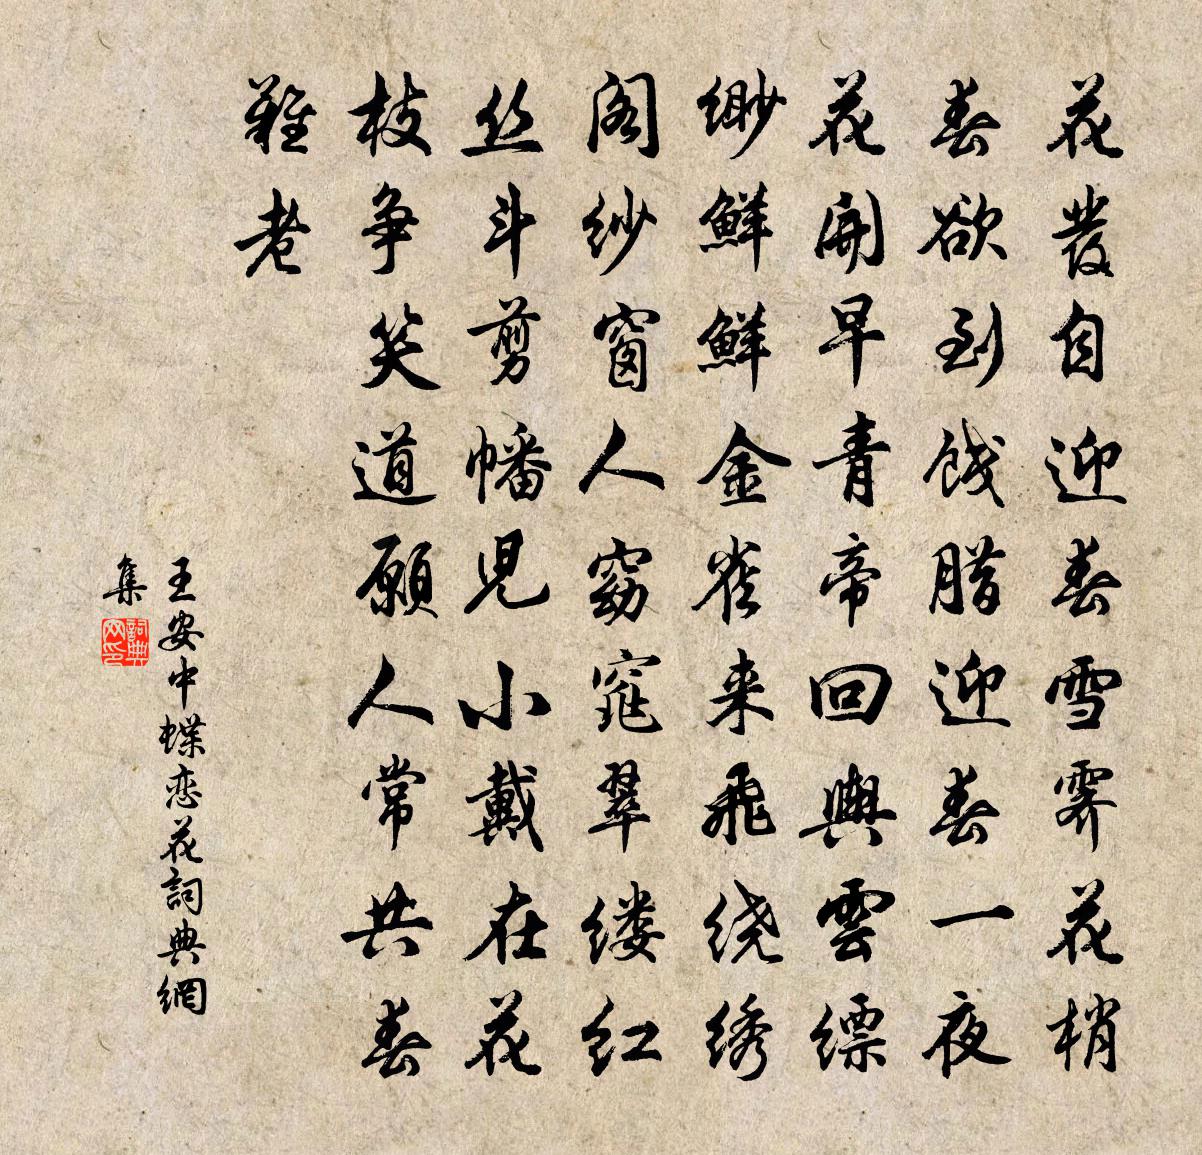 花發自迎春雪霁花梢
春欲到饯腊迎春一夜
花開早青帝回輿雲缥
缈鮮鮮金雀来飛绕绣
阁纱窗人窈窕翠缕红
丝斗剪幡児小戴在花
枝争笑道願人常共春
難老
王安中蝶恋花詞典網
集
詞典
网印